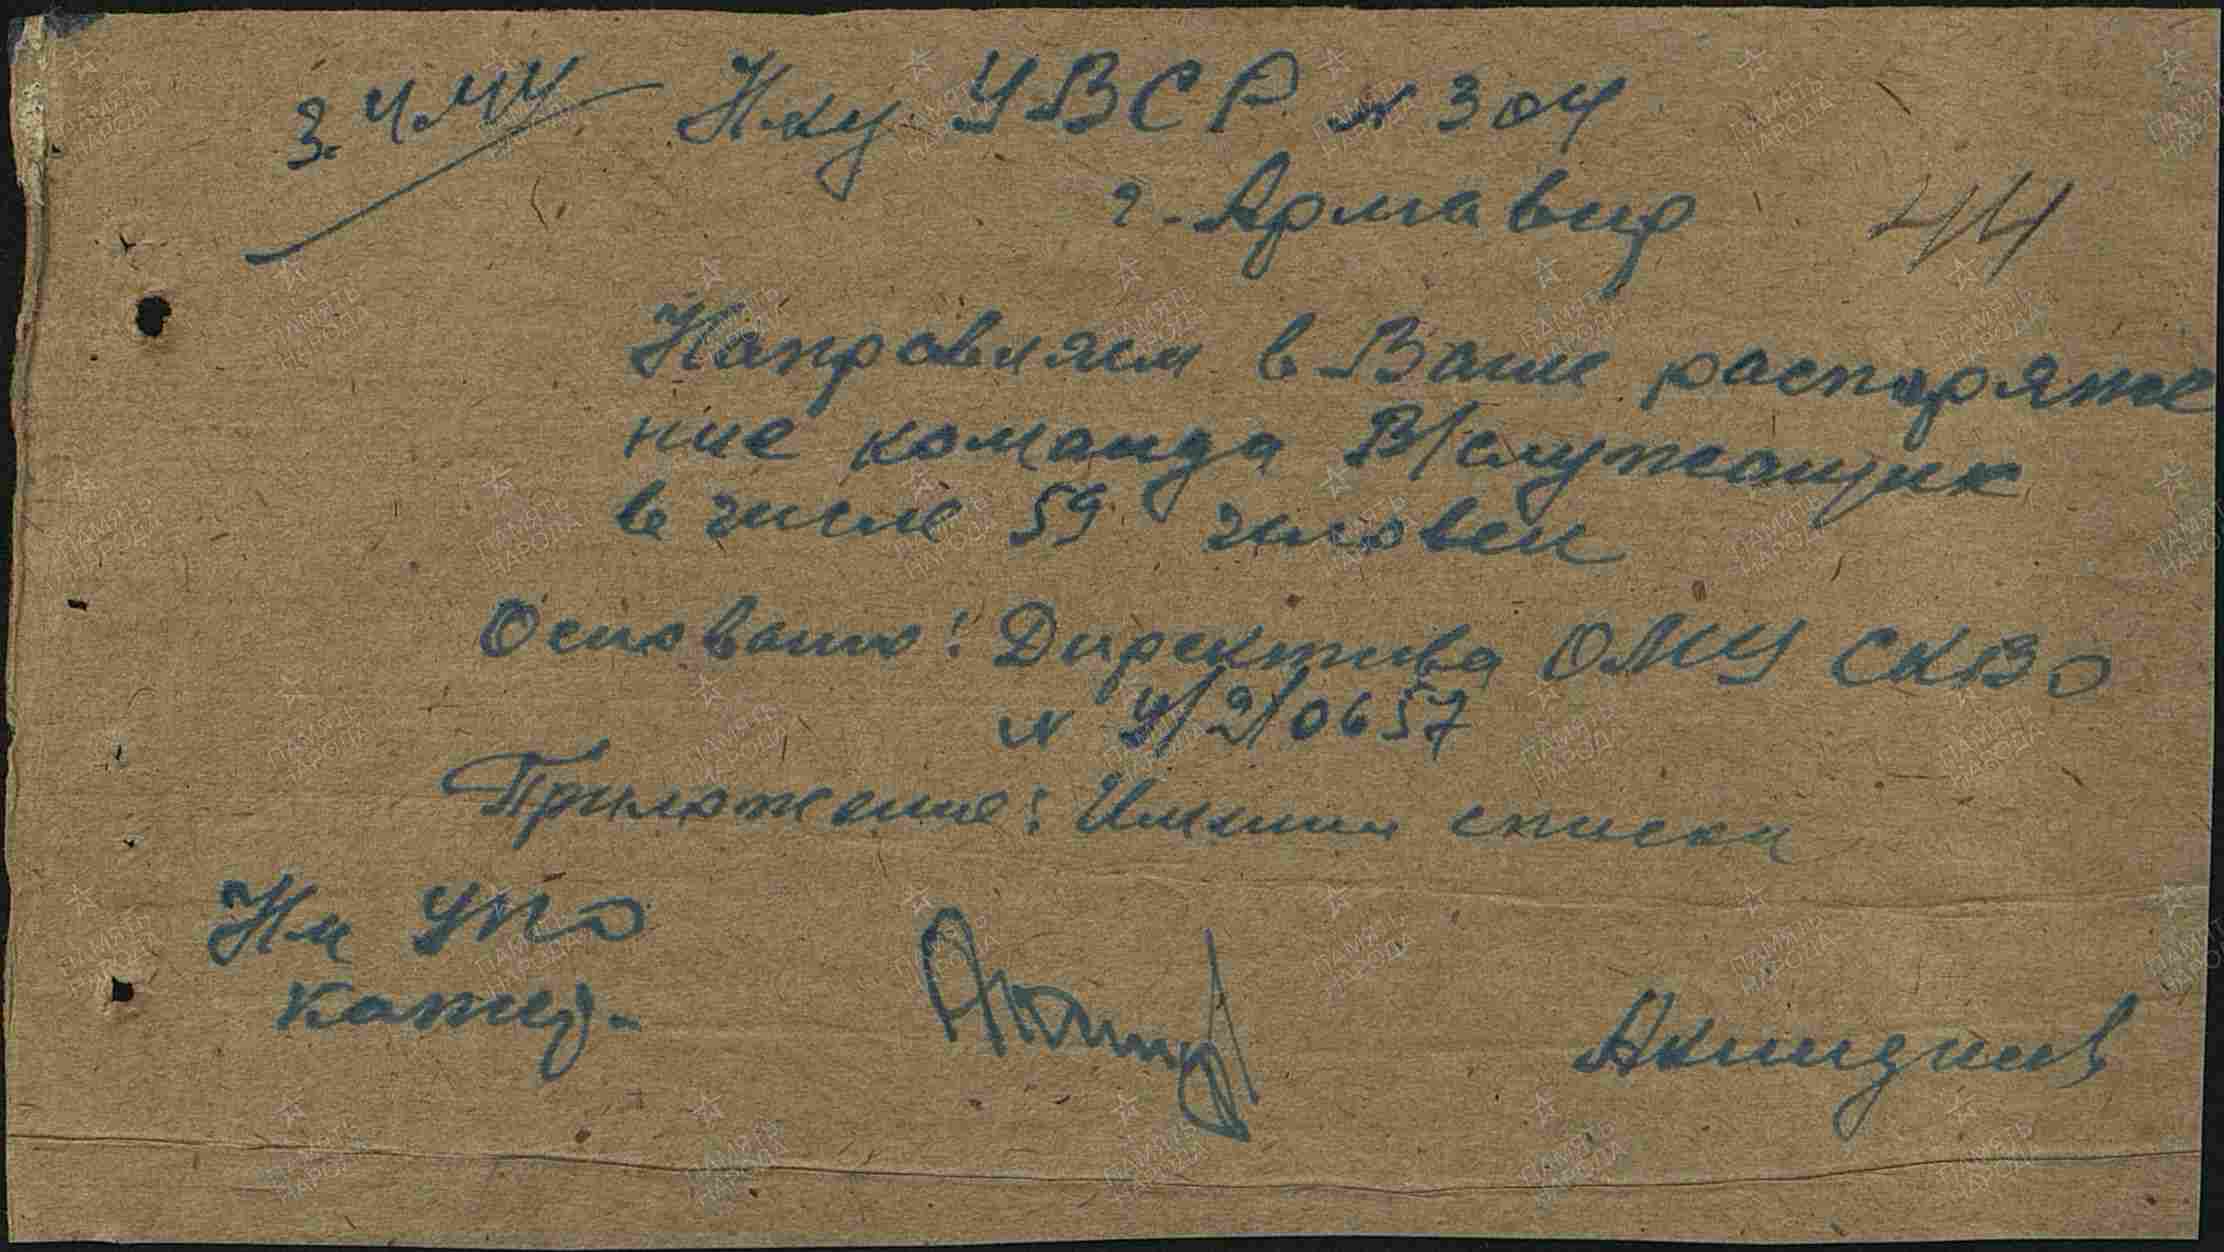 З. ЧМУ Нку УВСР № 304
г. Армавир 44
Направляем в Ваше распоряже
ние команда В/служащих
в числе 59 человек
Основание: Директива ОМУ СКВО
№ У/2/0657
Приложение: Именни списки
Нк УПО
капит.
Акиндинов